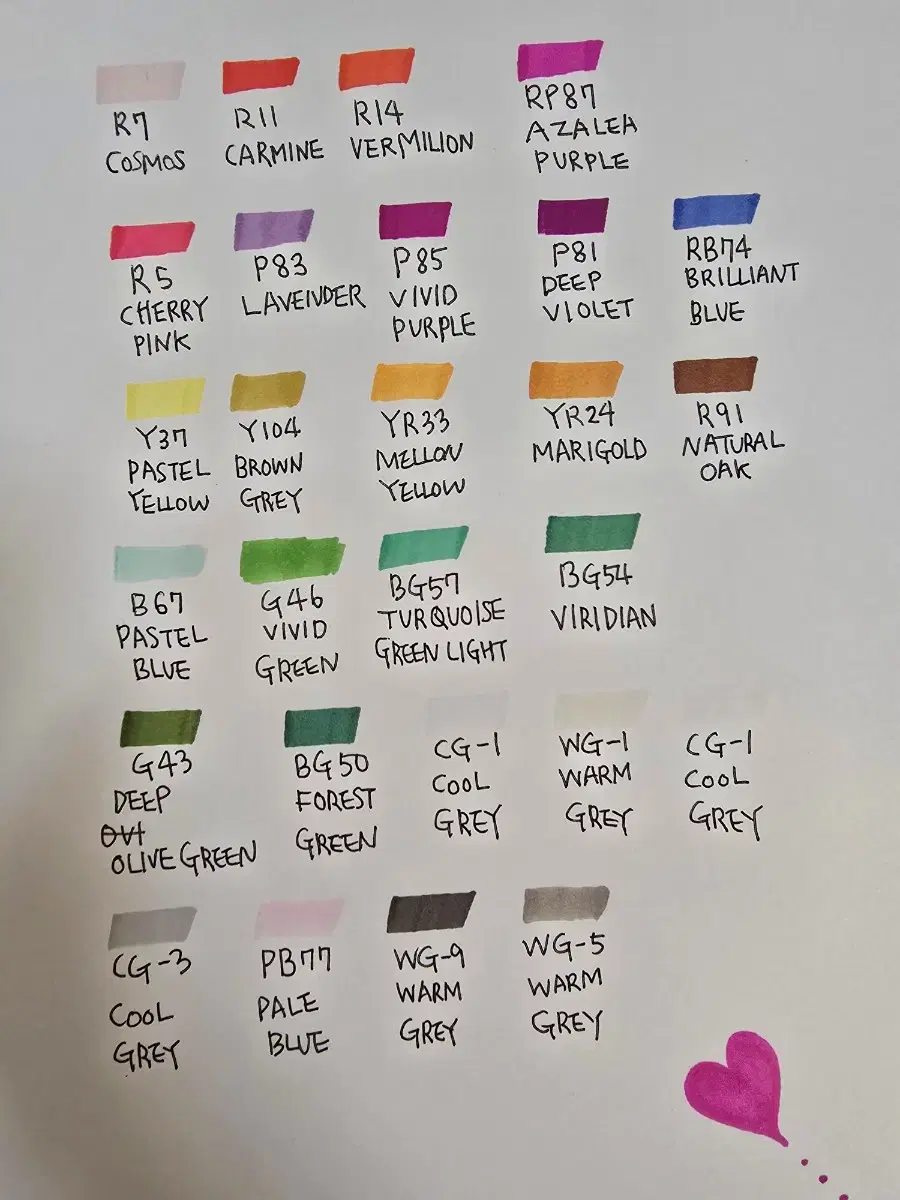 R7
COSMOS
R11
CARMINE
R14
VERMILION
RP87
AZALEA
PURPLE
R5
CHERRY
PINK
P83
LAVEIVDER
P85
VIVID
PURPLE
P81
DEEP
VIOLET
RB74
BRILLIANT
BLUE
Y37
PASTEL
YELLOW
Y104
BROWN
GREY
YR33
MELLON
YELLOW
YR24
MARIGOLD
R91
NATURAL
OAK
B67
PASTEL
BLUE
G46
VIVID
GREEN
BG57
TURQUOISE
GREEN LIGHT
BG54
VIRIDIAN
G43
DEEP
OLIVE GREEN
BG50
FOREST
GREEN
CG-1
COOL
GREY
WG-1
WARM
GREY
CG-1
COOL
GREY
CG-3
COOL
GREY
PB77
PALE
BLUE
WG-9
WARM
GREY
WG-5
WARM
GREY